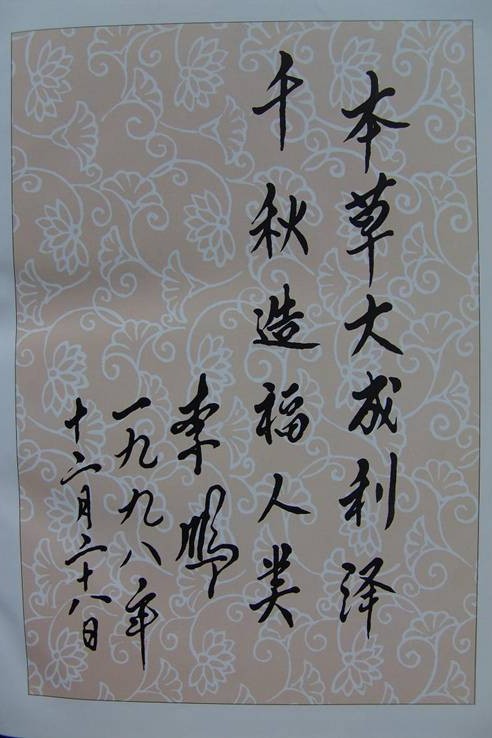 本草大成利泽
千秋造福人类
李鹏
一九九八年
十二月二十八日